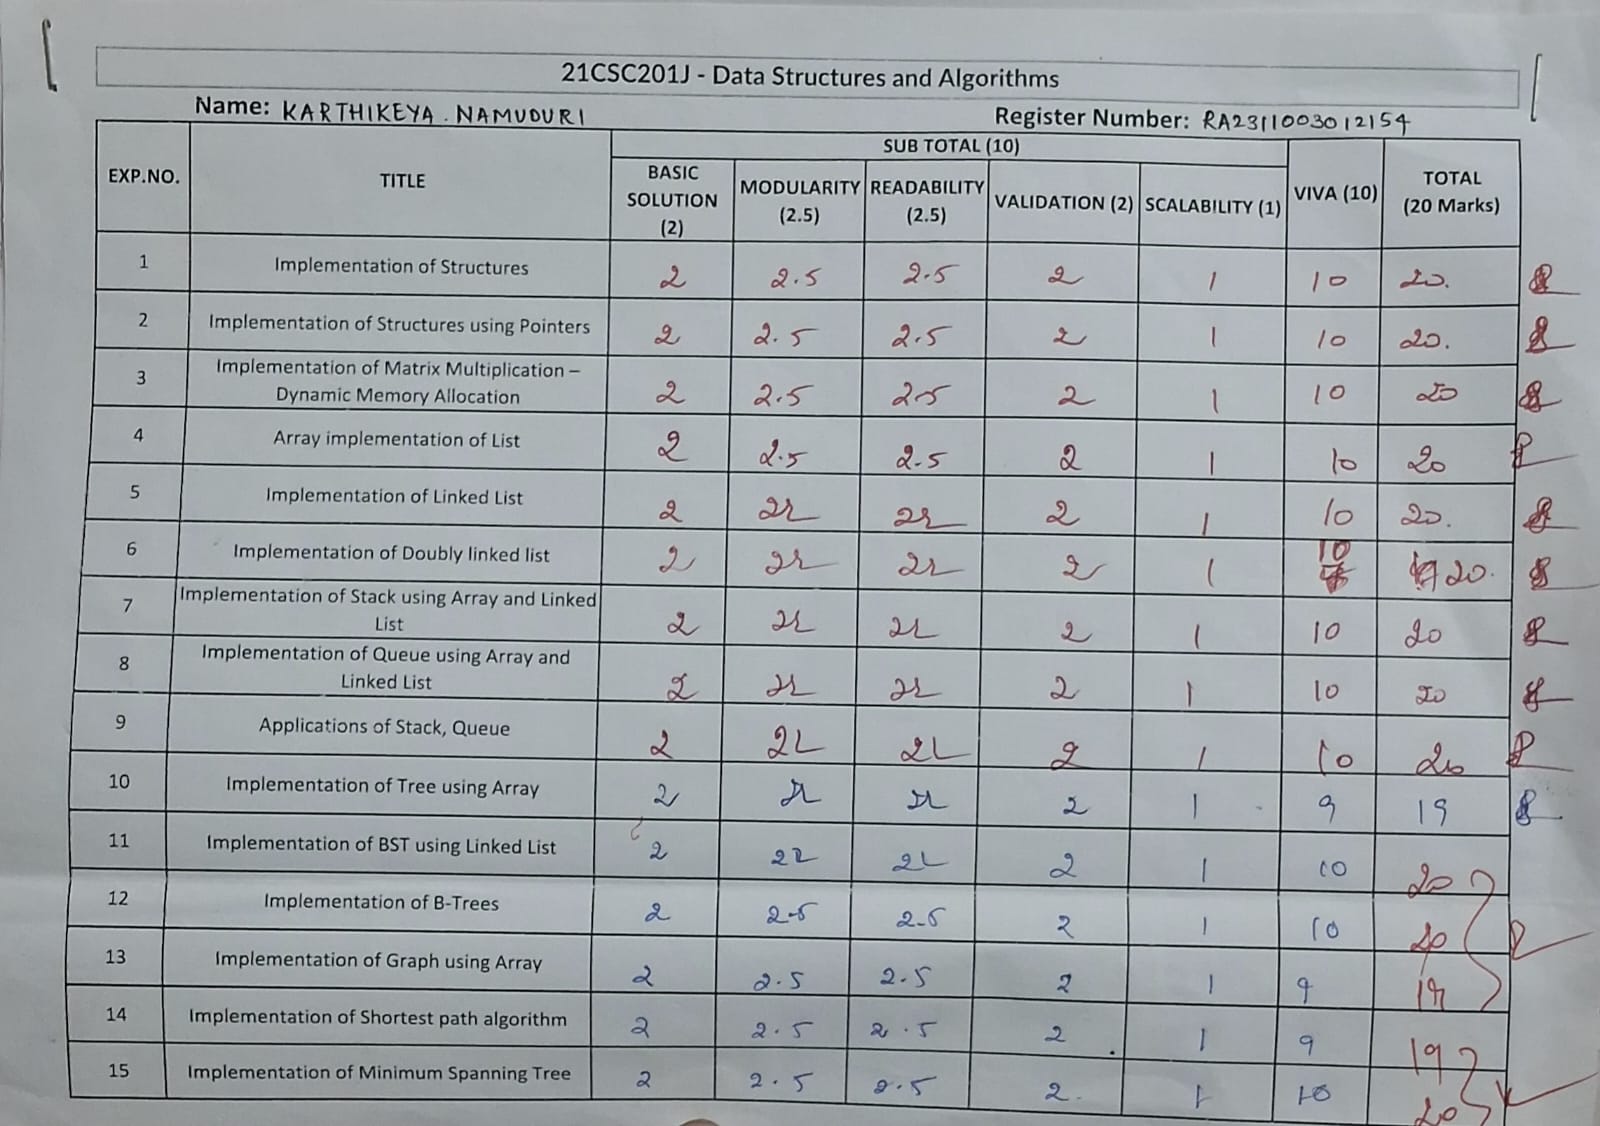 21CSC201J - Data Structures and Algorithms
Name: KARTHIKEYA. NAMUDURI Register Number: RA2311003012154
EXP.NO. TITLE SUB TOTAL (10) VIVA (10) TOTAL (20 Marks)
BASIC SOLUTION (2) MODULARITY (2.5) READABILITY (2.5) VALIDATION (2) SCALABILITY (1)
1 Implementation of Structures 2 2.5 2.5 2 1 10 20.
2 Implementation of Structures using Pointers 2 2.5 2.5 2 1 10 20.
3 Implementation of Matrix Multiplication –
Dynamic Memory Allocation 2 2.5 2.5 2 1 10 20
4 Array implementation of List 2 2.5 2.5 2 1 10 20
5 Implementation of Linked List 2 2 1 10 20.
6 Implementation of Doubly linked list 2 2 1 10 20.
7 Implementation of Stack using Array and Linked
List 2 2 1 10 20
8 Implementation of Queue using Array and
Linked List 2 2 1 10 20
9 Applications of Stack, Queue 2 2 1 10 20
10 Implementation of Tree using Array 2 2 1 9 19
11 Implementation of BST using Linked List 2 2 1 10 20
12 Implementation of B-Trees 2 2.5 2.5 2 1 10 20
13 Implementation of Graph using Array 2 2.5 2.5 2 1 9 19
14 Implementation of Shortest path algorithm 2 2.5 2.5 2 1 9 19
15 Implementation of Minimum Spanning Tree 2 2.5 2.5 2. 1 10 20